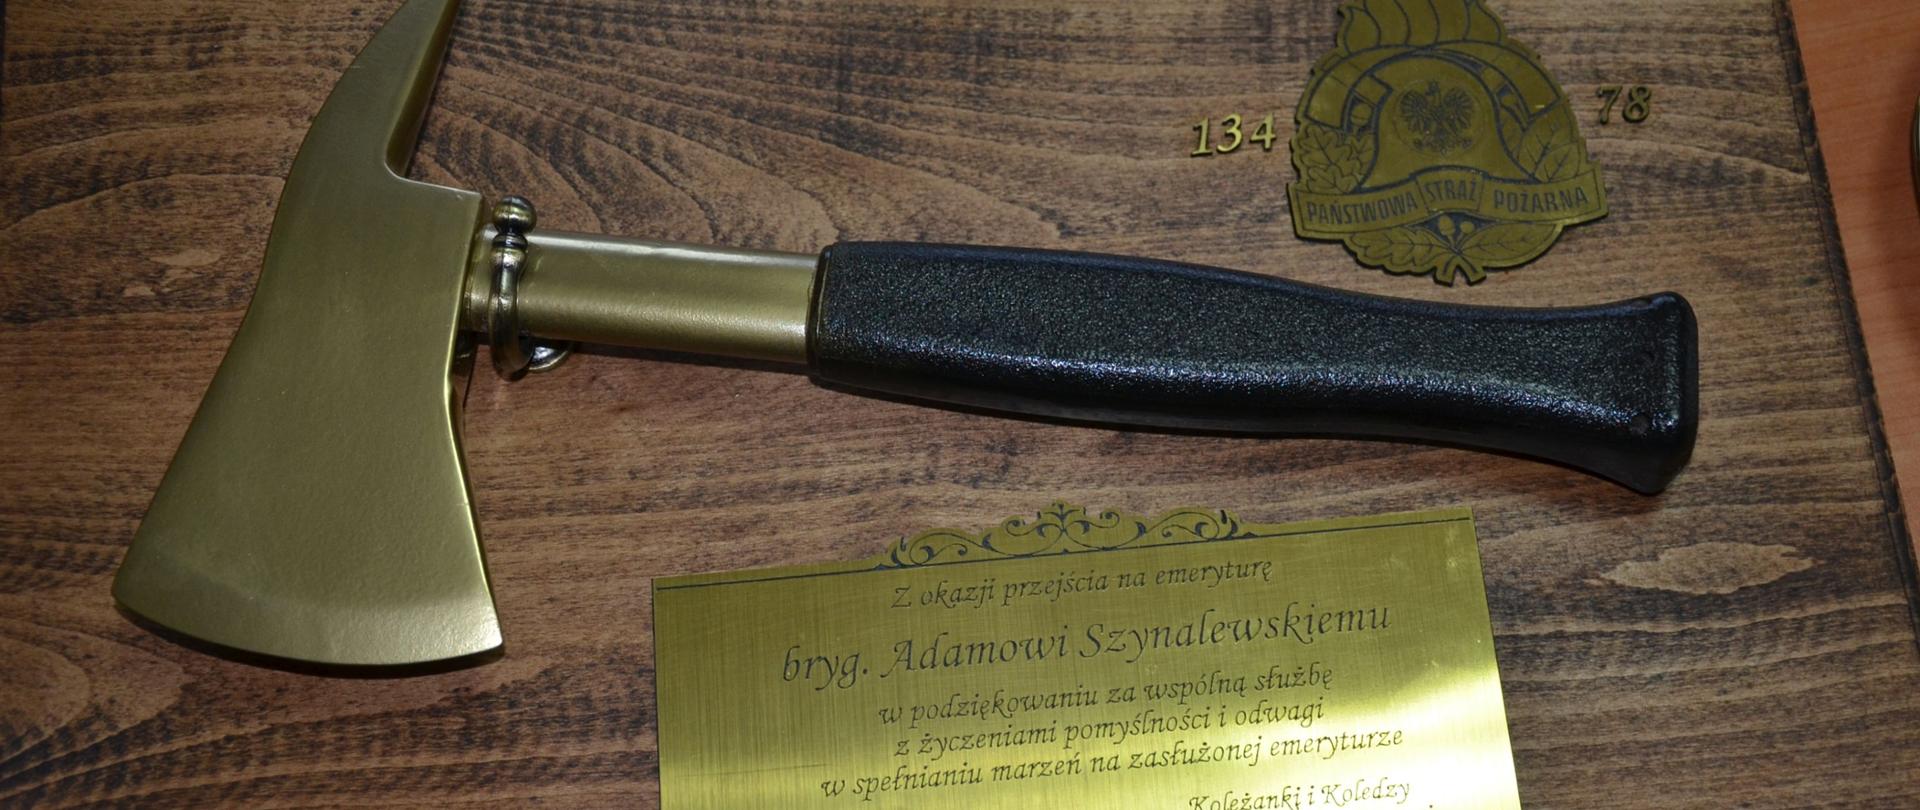 134
78
PAŃSTWOWA STRAŻ POŻARNA
Z okazji przejścia na emeryturę
bryg. Adamowi Szynalewskiemu
w podziękowaniu za wspólną służbę
z życzeniami pomyślności i odwagi
w spełnianiu marzeń na zasłużonej emeryturze
Koleżanki i Koledzy